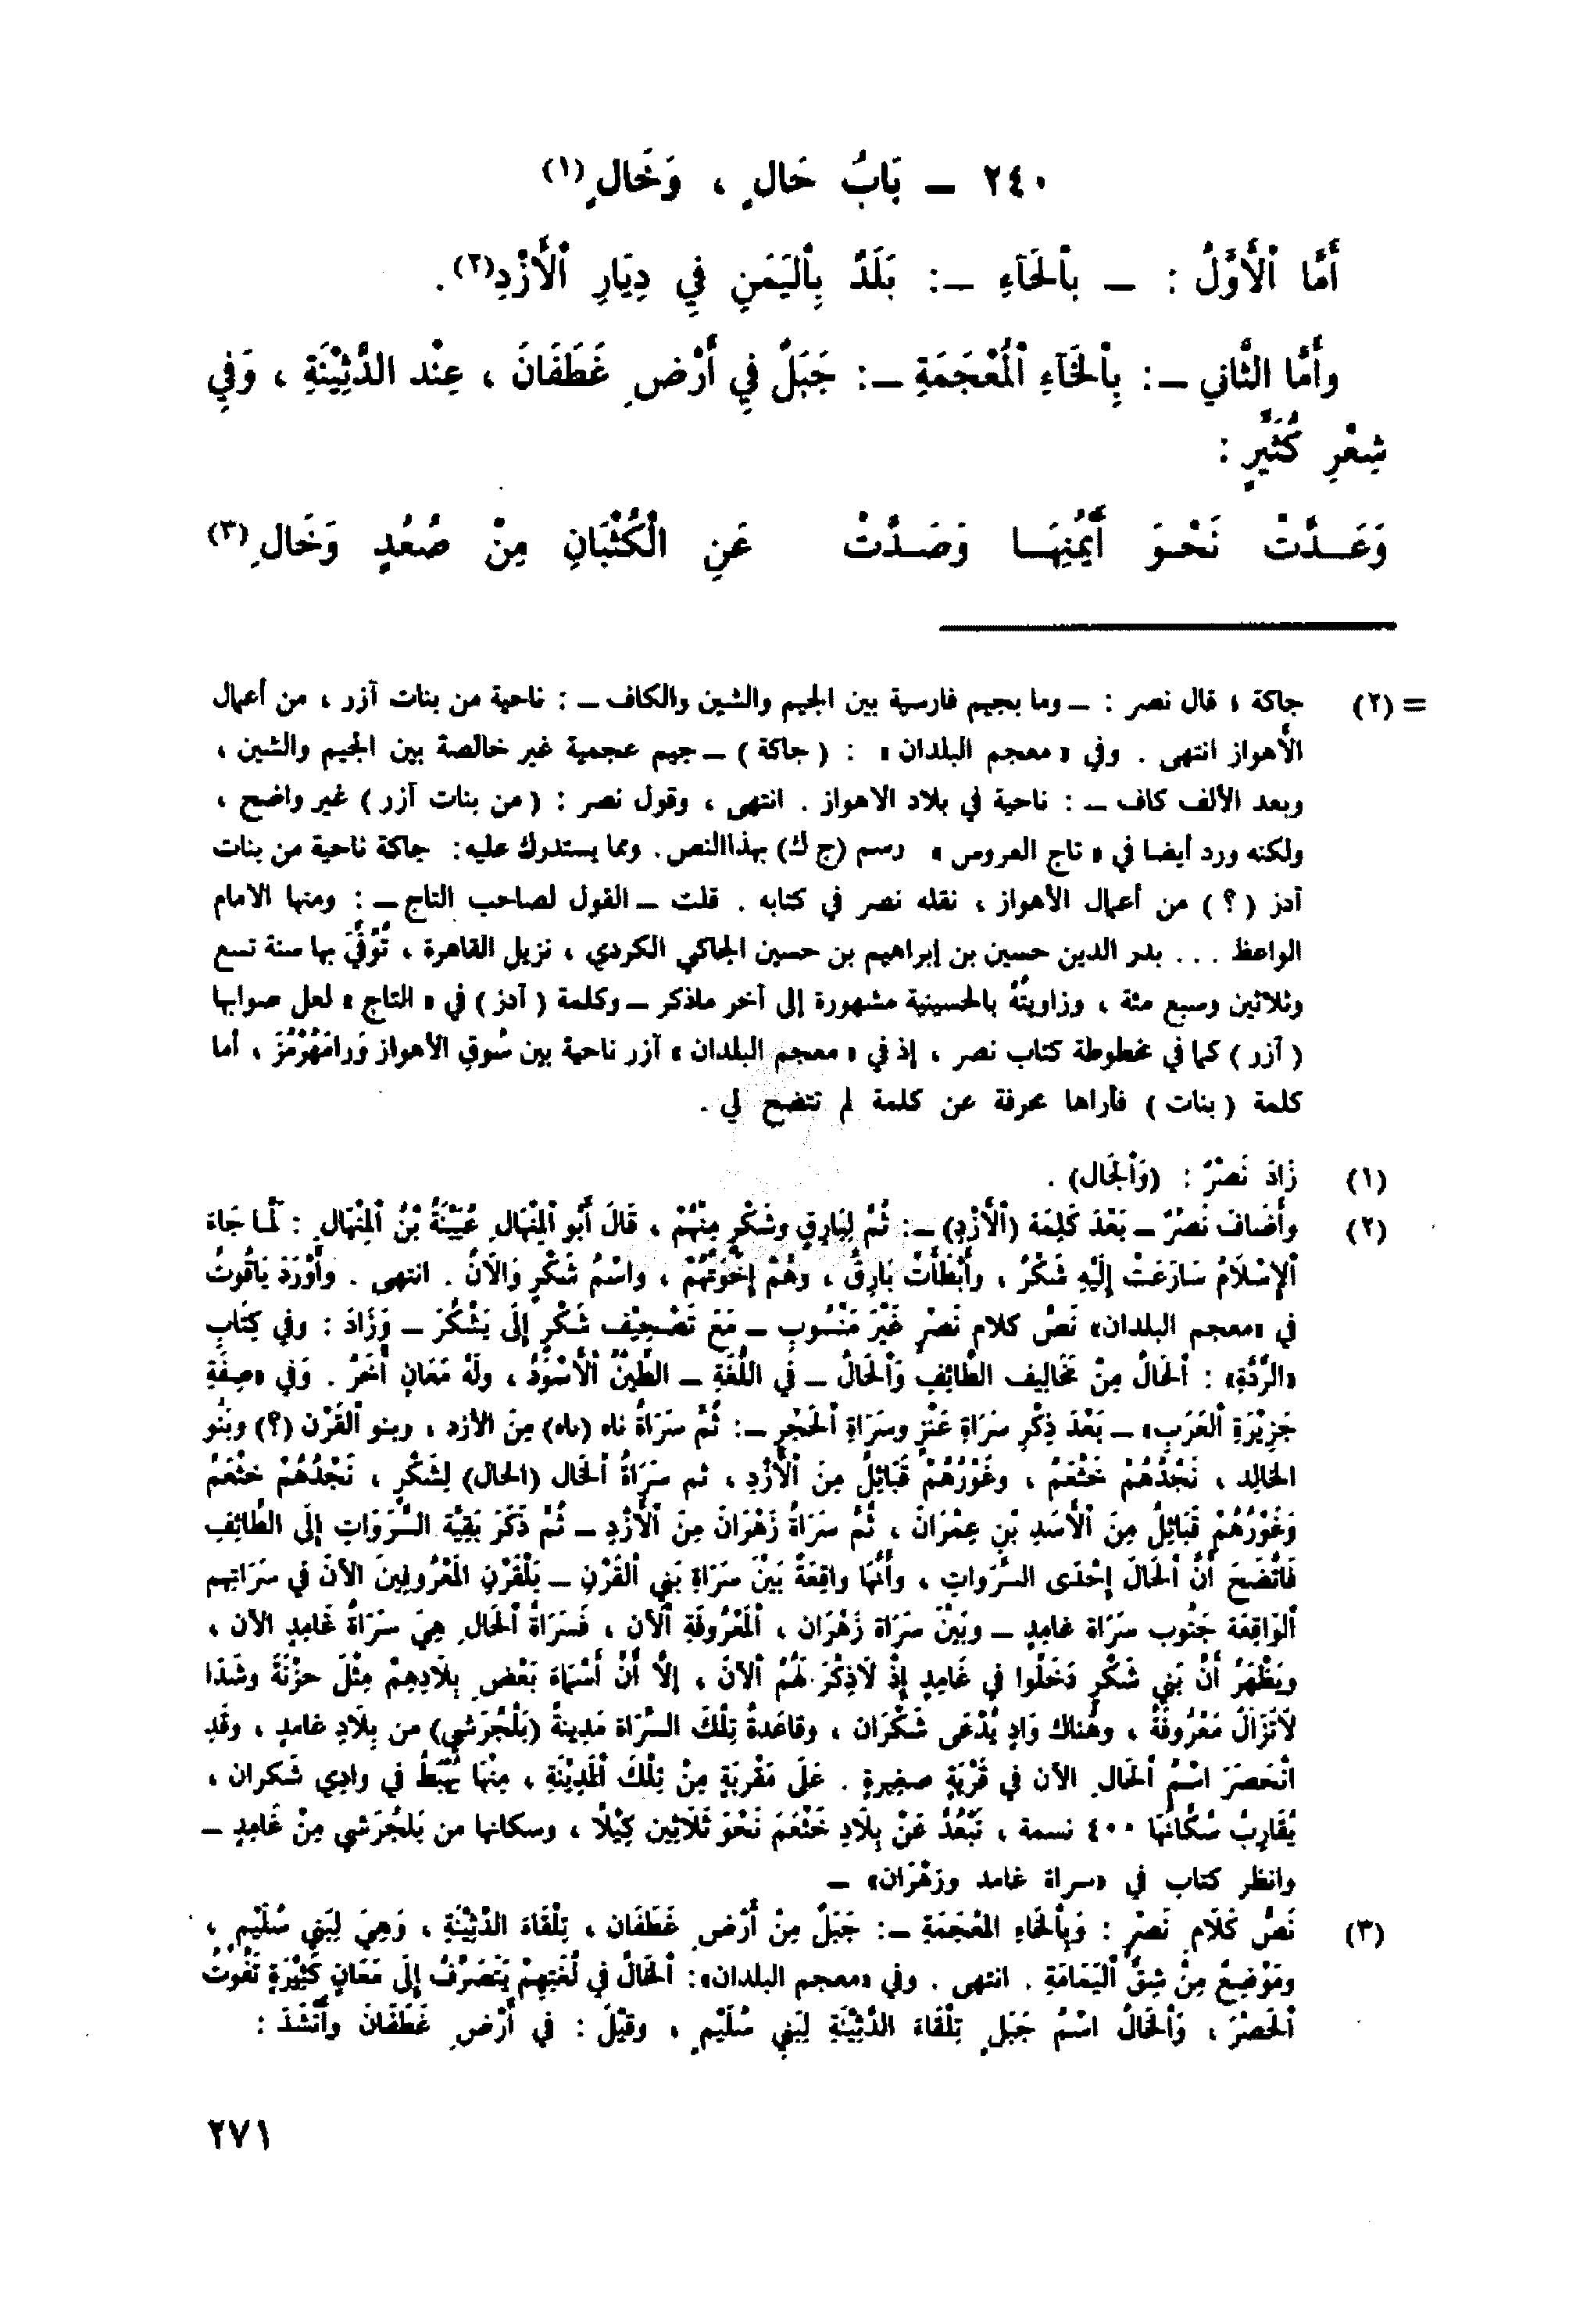 ٢٤٠ – بَابُ حَالٍ ، وَخَالٍ (١)
أَمَّا ٱلْأَوَّلُ : – بِٱلْحَاءِ –: بَلَدٌ بِٱلْيَمَنِ فِي دِيَارِ ٱلْأَزْدِ (٢).
وأَمَّا الثَّاني –: بِٱلْخَاءِ ٱلْمُعْجَمَةِ –: جَبَلٌ فِي أَرْضِ غَطَفَانَ ، عِنْد الدَّثِيْنَةِ ، وَفِي
شِعْرِ كُثَيِّرٍ :
وَعَــدَّتْ نَحْـوَ أَيْمُنِهَــا وَصَـدَّتْ عَنِ الْكُثْبَانِ مِنْ صُعُدٍ وَخَالِ (٣)
= (٢) جاكة ، قال نصر : – وما بجيم فارسية بين الجيم والشين والكاف – : ناحية من بنات آزر ، من أعمال
الأهواز انتهى . وفي « معجم البلدان » : ( جاكة ) – جيم عجمية غير خالصة بين الجيم والشين ،
وبعد الألف كاف – : ناحية في بلاد الاهواز . انتهى ، وقول نصر : ( من بنات آزر ) غير واضح ،
ولكنه ورد أيضا في « تاج العروس » رسم (ج ك) بهذاالنص . ومما يستدرك عليه : جاكة ناحية من بنات
آدز ( ؟ ) من أعمال الأهواز ، نقله نصر في كتابه . قلت – القول لصاحب التاج – : ومنها الامام
الواعظ ... بدر الدين حسين بن إبراهيم بن حسين الجاكي الكردي ، نزيل القاهرة ، تُوُفِّيَ بها سنة تسع
وثلاثين وسبع مئة ، وزاويتُهُ بالحسينية مشهورة إلى آخر ماذكر – وكلمة ( آدز ) في « التاج » لعل صوابها
( آزر ) كما في مخطوطة كتاب نصر ، إذ في « معجم البلدان » آزر ناحية بين سُوقِ الأهواز وَرامَهُرْمُزَ ، أما
كلمة ( بنات ) فأراها محرفة عن كلمة لم تتضح لي .
(١) زَادَ نَصْرٌ : (وَٱلْجَال) .
(٢) وأَضَافَ نَصْرٌ – بَعْدَ كَلِمَة (ٱلْأَزْدِ) –: ثُمَّ لِبَارِقٍ وشَكْرٍ مِنْهُمْ ، قَالَ أَبُو ٱلْمِنْهَالِ عُيَيْنَةُ بْنُ ٱلْمِنْهَالِ : لَمَّـا جَاءَ
ٱلإِسْلَامُ سَارَعَتْ إِلَيْهِ شَكْرُ ، وأَبْطَأَتْ بَارِقُ ، وهُمْ إِخْوَتُهُمْ ، واسْمُ شَكْرٍ وَالَانُ . انتهى . وأَوْرَدَ يَاقُوتُ
في «معجم البلدان» نَصَّ كلام نَصْرٍ غَيْرَ مَنْسُوبٍ – مَعَ تَصْحِيْف شَكْرٍ إلَى يَشْكُرَ – وَزَادَ : وفي كِتَابِ
«الرِّدَّةِ» : ٱلْحَالُ مِنْ مَخَالِيف الطَّائِفِ وَٱلْحَالُ – في اللُّغَةِ – الطِّيْنُ ٱلْأَسْوَدُ ، ولَهُ مَعَانٍ أُخَرُ . وَفِي «صِفَةِ
جَزِيْرَةِ ٱلْعَرَبِ» – بَعْدَ ذِكْرِ سَرَاةِ عَنْزٍ وسَرَاةِ ٱلْحَجْرِ –: ثُمَّ سَرَاةُ ناه (ىاه) مِنَ الأزد ، وبنو ٱلْقَرْن (؟) وبَنُو
الخالد ، نَجْدُهُمْ خَثْعَمُ ، وغَوْرُهُمْ قَبَائِلُ مِنَ ٱلْأَزْدِ ، ثم سَرَاةُ ٱلْحَال (الحال) لِشَكْرٍ ، نَجْدُهُمْ خَثْعَمُ
وَغَوْرُهُمْ قَبَائِلُ مِنَ ٱلْأَسَدِ بْنِ عِمْرَانَ ، ثُمَّ سَرَاةُ زَهْرَانَ مِنَ ٱلْأَزْدِ – ثُمَّ ذَكَرَ بَقِيَّةَ السَّرَوَاتِ إلَى الطَّائِفِ
فَاتَّضَحَ أَنَّ ٱلْحَالَ إحْدَى السَّرَوَاتِ ، وأَنَّهَا واقِعَةٌ بَيْنَ سَرَاةِ بَنِي ٱلْقَرْنِ – بَلْقَرْنِ الْمَعْرُوفِينَ الآنَ في سَرَاتِهِم
ٱلْوَاقِعَة جَنُوب سَرَاة غامِدٍ – وبَيْنَ سَرَاة زَهْرَان ، ٱلْمَعْرُوفَةِ ٱلْآن ، فَسَرَاةُ ٱلْحَالِ هِيَ سَرَاةُ غَامِدٍ الآن ،
ويَظْهَرُ أَنَّ بَنِي شَكْرٍ دَخَلُوا في غَامِدٍ إذْ لَاذِكْرَ لَهُمُ ٱلْآنَ ، إلَّا أَنَّ أَسْمَاءَ بَعْضِ بِلَادِهِمْ مِثْلَ حزْنَةَ وشَدَا
لَاتَزَالُ مَعْرُوفَةً ، وهُناك وَادٍ يُدْعَى شَكْرَان ، وقاعَدةُ تِلْكَ السَّرَاة مَدِينةُ (بَلْجُرَشِي) من بِلَادِ غامدٍ ، وقَدِ
انْحَصَرَ اسْمُ ٱلْحَالِ الآن في قَرْيَةٍ صغيرةٍ . عَلَى مَقْرِبَةٍ مِنْ تِلْكَ ٱلْمَدِيْنَةِ ، مِنْهَا يُهْبَطُ في وادِي شَكران ،
يُقَارِبُ سُكَّانُهَا ٤٠٠ نسمة ، تَبْعُدُ عَنْ بِلَادِ خَثْعَمَ نَحْوَ ثَلَاثِين كِيْلًا ، وسكانها من بَلْجُرَشي مِنْ غَامِدٍ –
وانظر كتاب في «سراة غامد وزهْرَان» –
(٣) نَصُّ كَلَامِ نَصْرٍ : وَبِٱلْخَاءِ الْمُعْجَمَةِ –: جَبَلٌ مِنْ أَرْضِ غَطَفَان ، تِلْقَاءَ الدَّثِيْنَةِ ، وَهِيَ لِبَنِي سُلَيْمٍ ،
ومَوْضِعٌ مِنْ شِقِّ ٱلْيَمَامَةِ . انتهى . وفي «معجم البلدان»: ٱلْخَالُ في لُغَتِهِمْ يَتَصَرَّفُ إلَى مَعَانٍ كَثِيْرَةٍ تَفُوتُ
ٱلْحَصْرَ ، وَٱلْخَالُ اسْمُ جَبَلٍ تِلْقَاءَ الدَّثِيْنَةِ لِبَنِي سُلَيْمٍ ، وقِيْلَ : في أَرْضِ غَطَفَانَ وأَنْشَدَ :
٢٧١